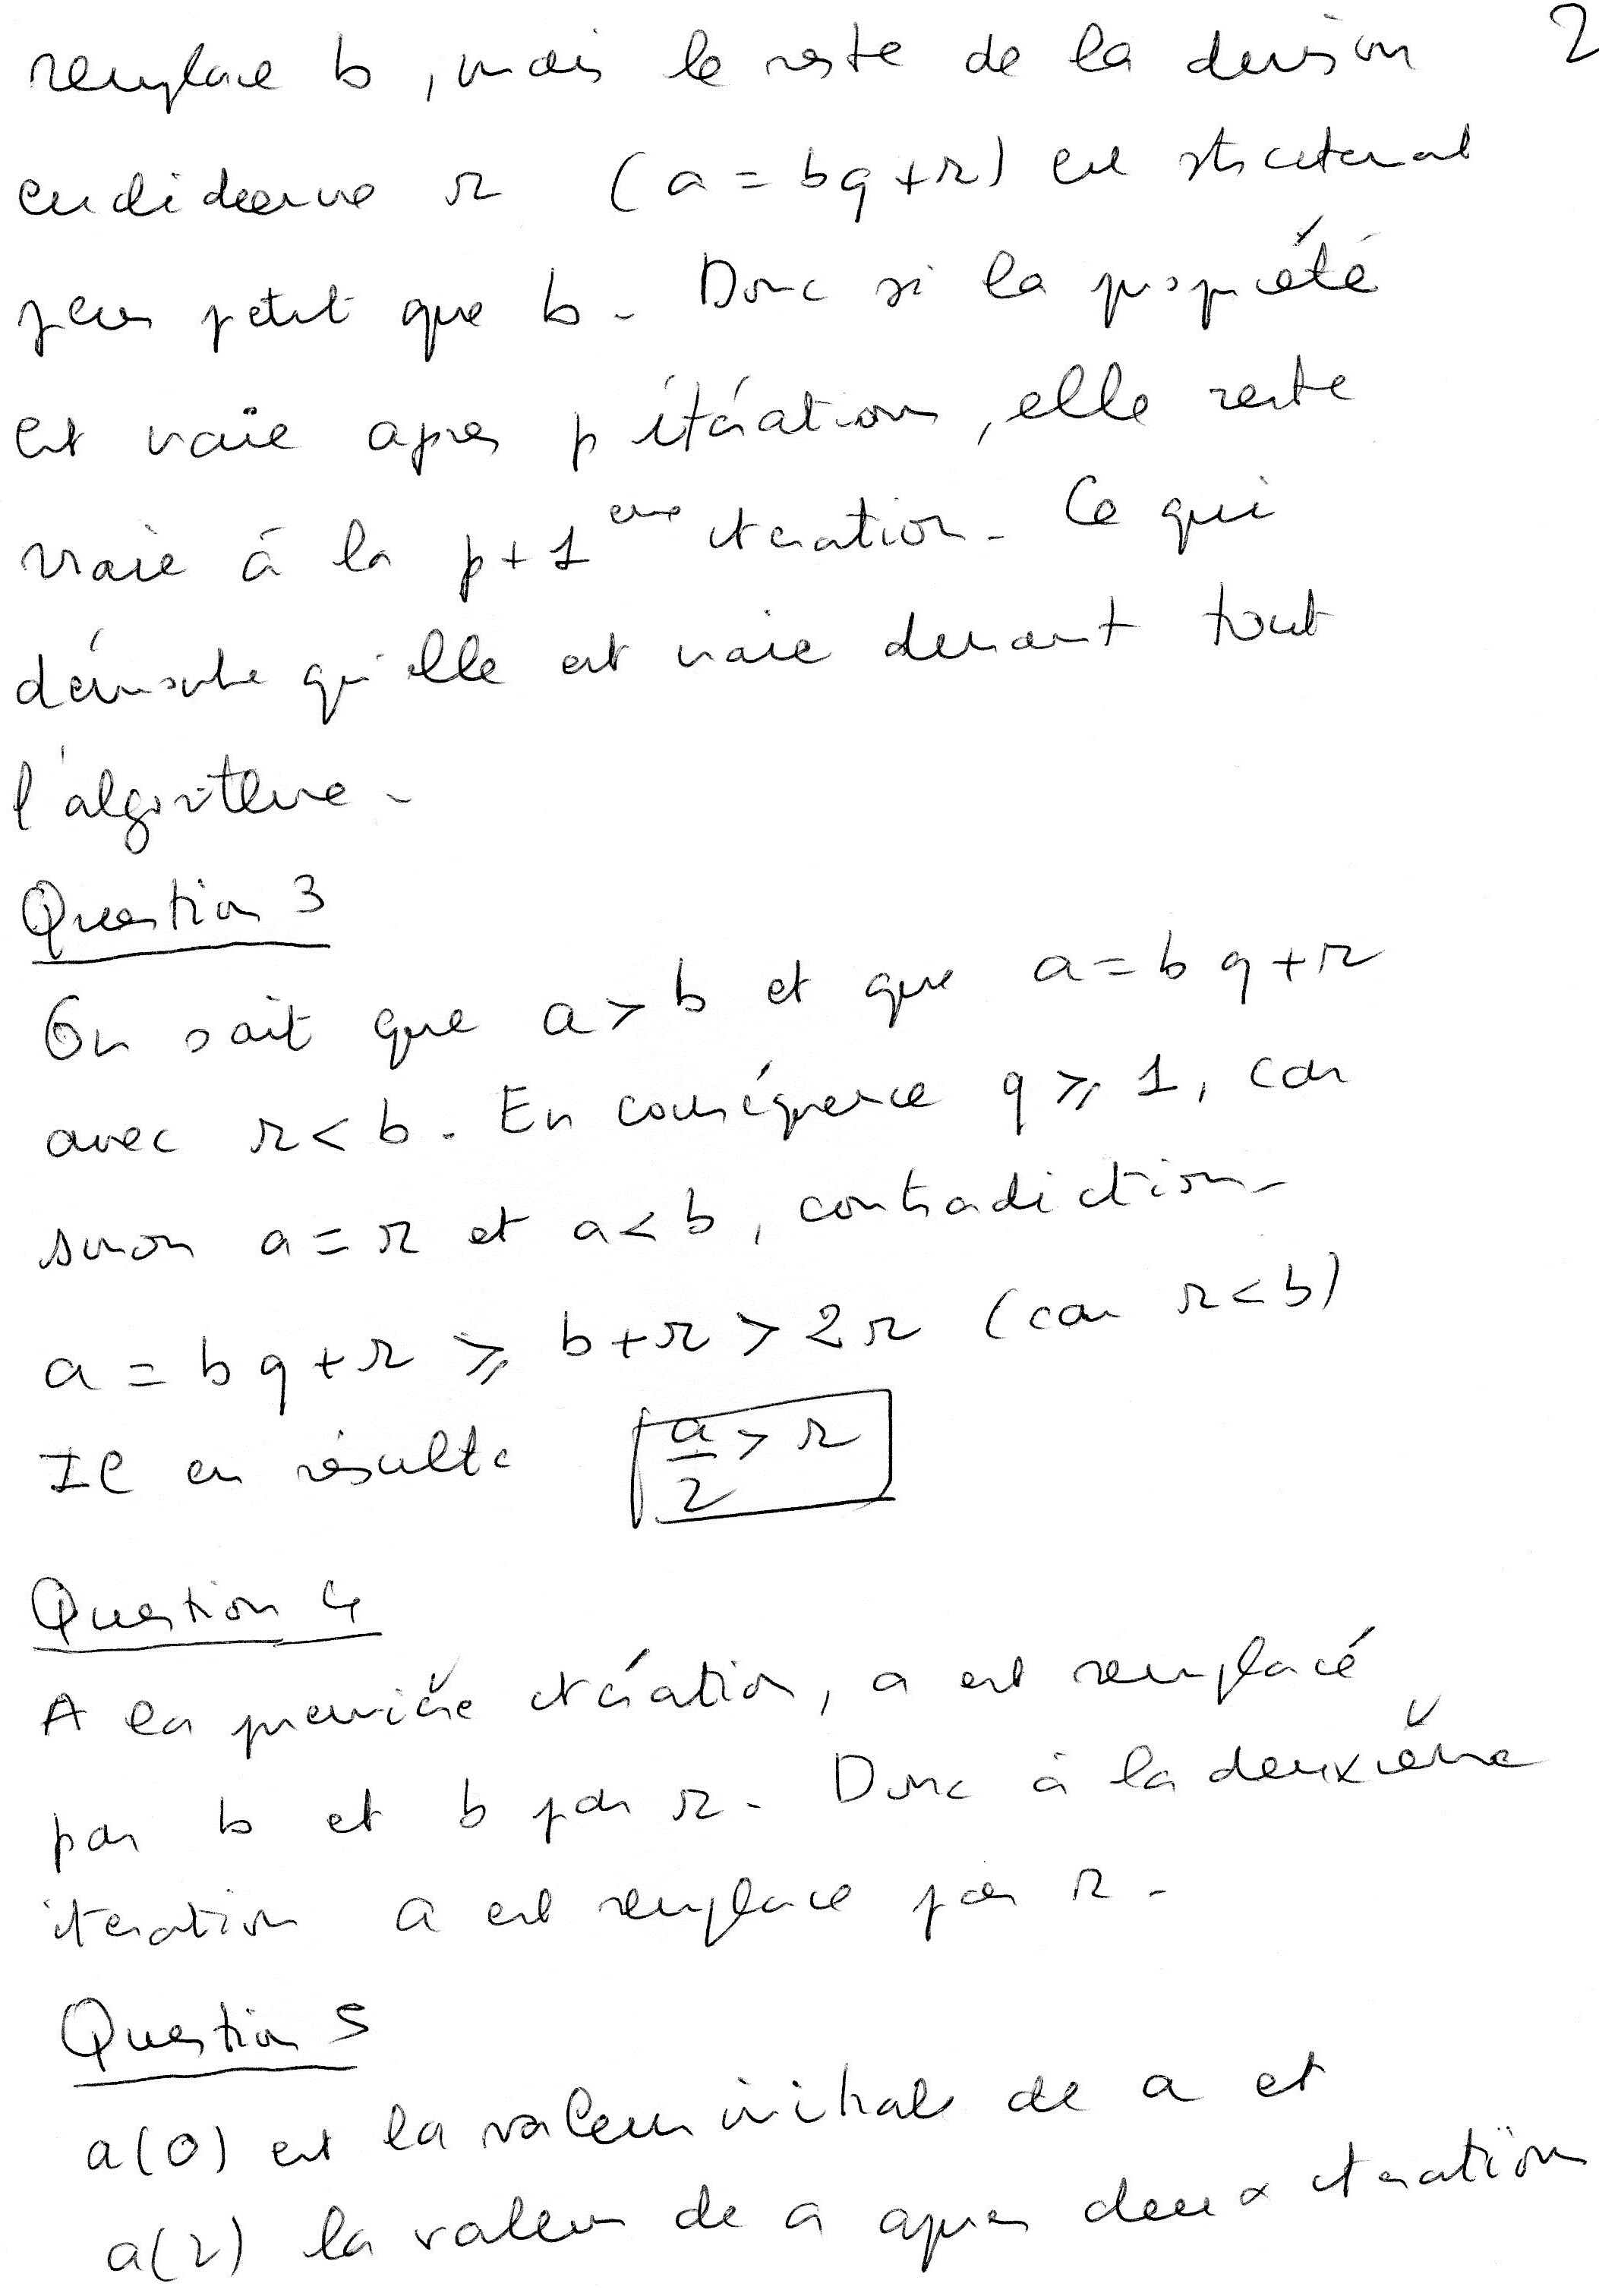 remplace b, mais le reste de la division 2
euclidienne r (a = bq + r) est strictement
plus petit que b. Donc si la propriété
est vraie apres p itérations, elle reste
vraie à la p+1 eme iteration. Ce qui
démontre qu'elle est vraie durant tout
l'algorithme.
Question 3
On sait que a > b et que a = b q + r
avec r < b. En conséquence q ⩾ 1, car
sinon a = r et a < b, contradiction.
a = b q + r ⩾ b + r > 2 r (car r < b)
Il en résulte a/2 > r
Question 4
A la première itération, a est remplacé
par b et b par r. Donc à la deuxième
iteration a est remplace par r.
Question 5
a(0) est la valeur initiale de a et
a(2) la valeur de a apres deux iterations